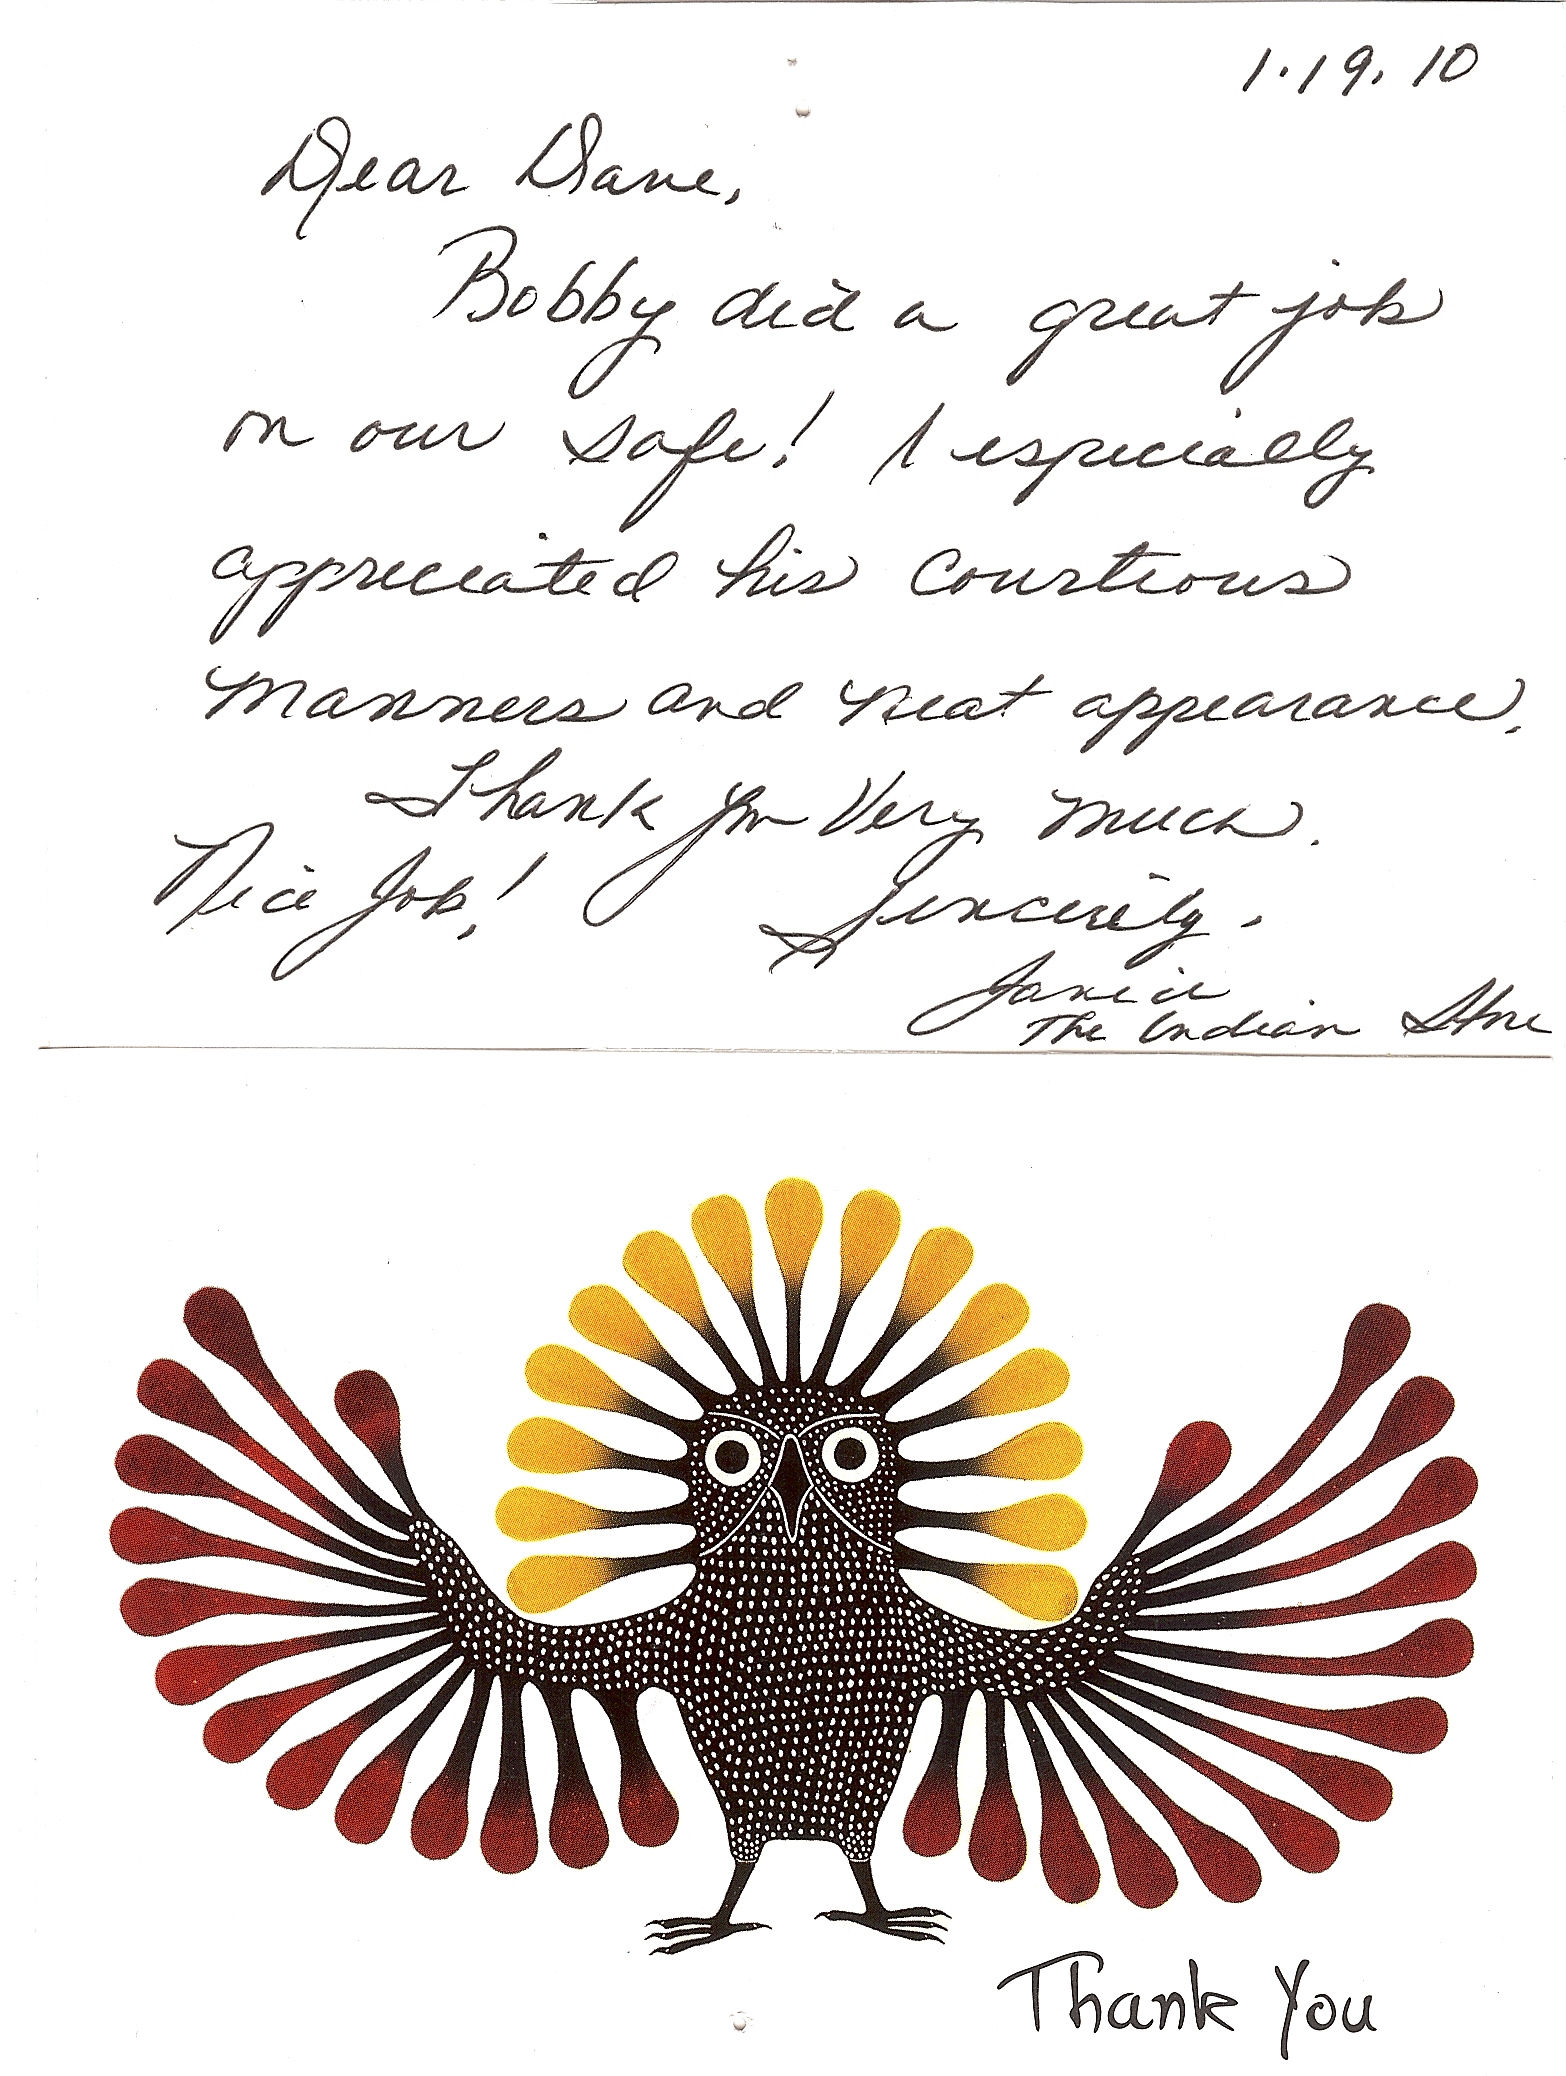 1.19.10
Dear Dave,
Bobby did a great job
on our safe! I especially
appreciated his courtious
manners and neat appearance.
Thank you very much.
Nice Job! Sincerely,
Janice
The Indian Store
Thank You